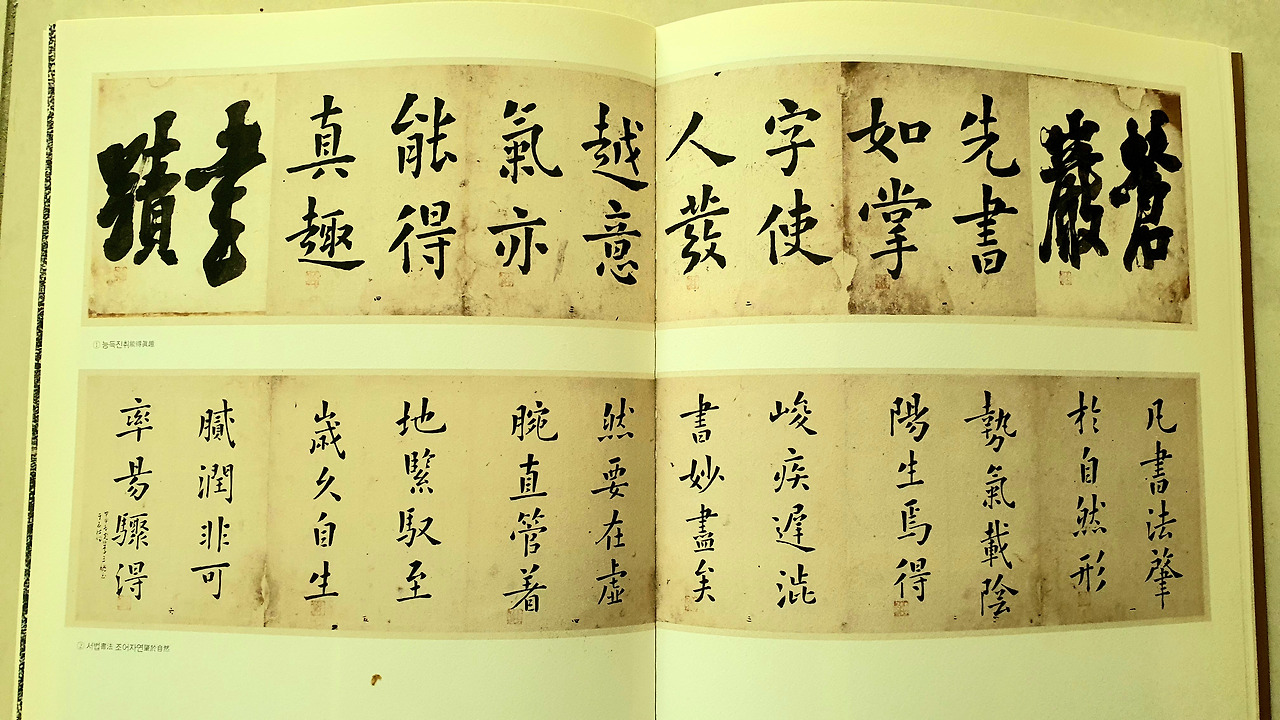 蒼
巖
先書
如掌
字使
人發
越意
氣亦
能得
真趣
書
蹟
① 능득진취能得眞趣
凡書法肇
於自然形
勢氣載陰
陽生焉得
峻疾遲澁
書妙盡矣
然要在虛
腕直管着
地緊馭至
歲久自生
膩潤非可
率易驟得
② 서법書法 조어자연肇於自然